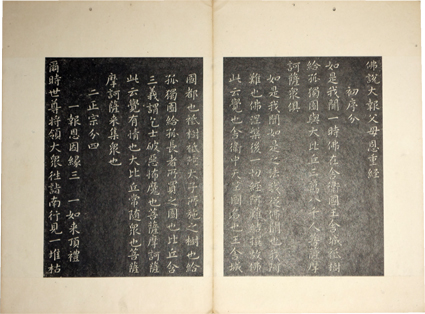 佛說大報父母恩重經
初序分
如是我聞一時佛在舍衛國王舍城祇樹
給孤獨園與大比丘三萬八千人菩薩摩
訶薩俱
如是我聞如是之法我從佛聞也我阿
難也佛涅槃後一切經阿難結撰故佛
此云覺也舍衛中天竺國名也王舍城
國都也祇樹祇陀太子所施之樹也給
孤獨園給孤長者所買之園也比丘含
三義謂乞士破惡怖魔也菩薩摩訶薩
此云覺有情也大比丘常隨眾也菩薩
摩訶薩來集眾也
二正宗分四
一報恩因緣三 一如來頂禮
爾時世尊將領大眾往詣南行見一堆枯